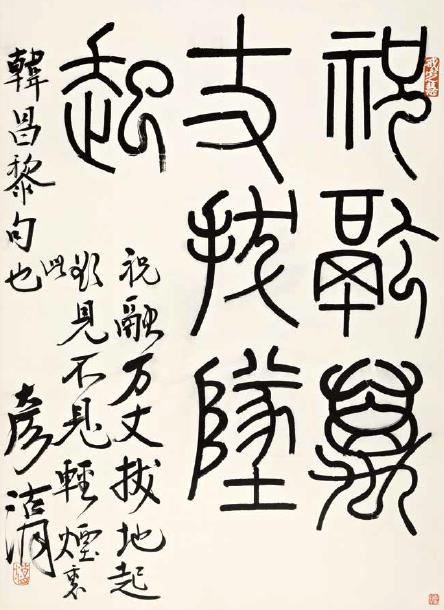 祝融萬
丈拔墜
起
祝融万丈拔地起
欲見不見輕煙裏
此
韓昌黎句也
彦涵